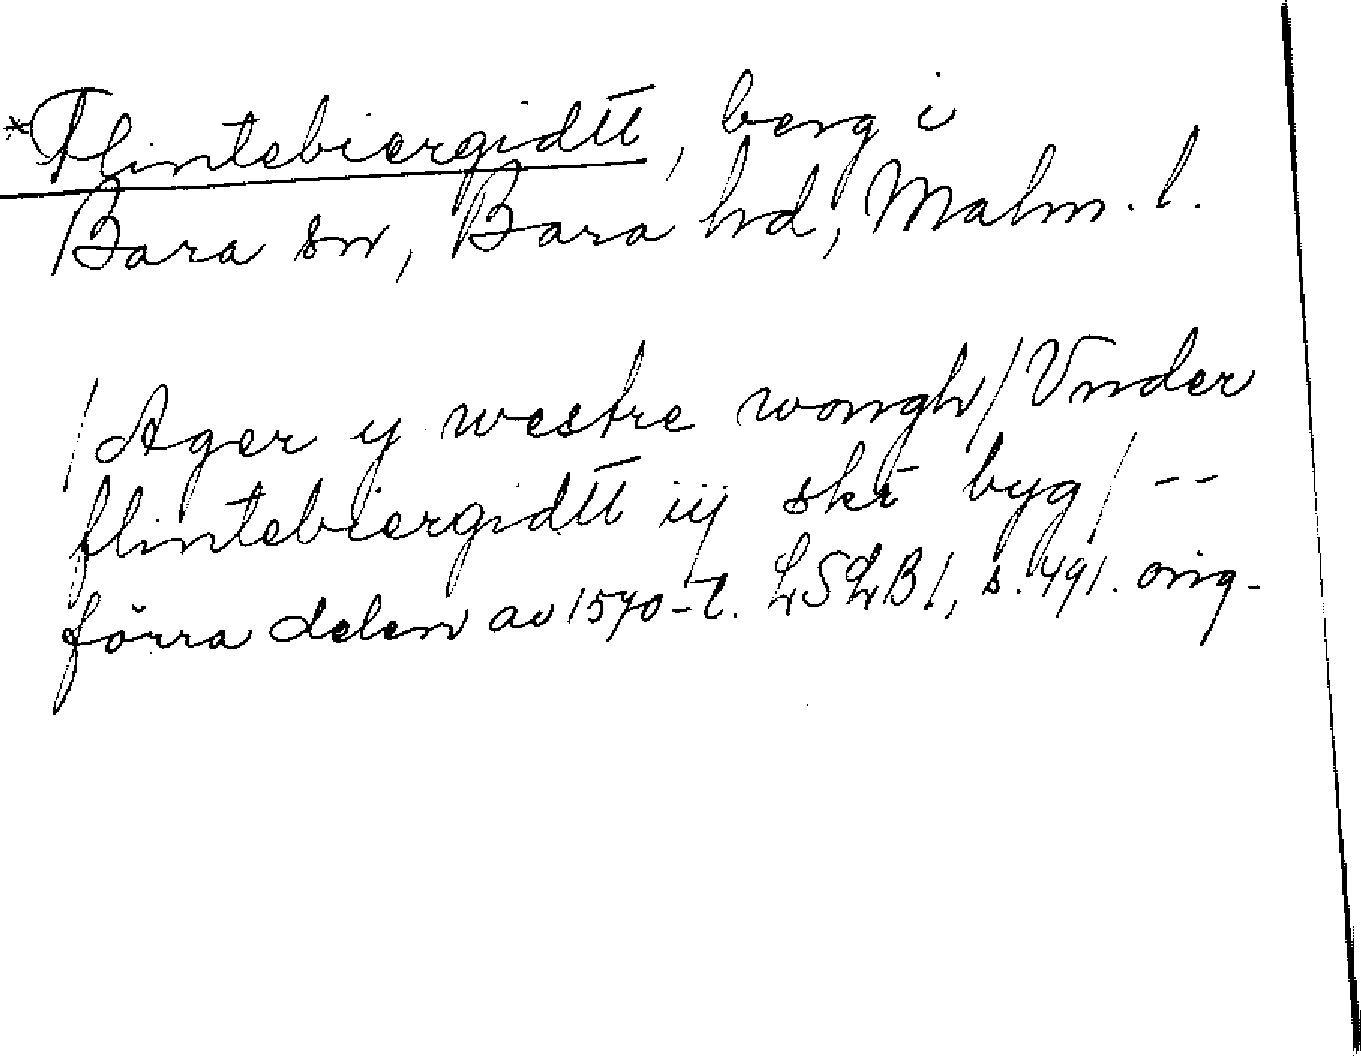 *Flintebiergidtt, berg i
Bara sn, Bara hd, Malm. l.
/Ager y westre wongh/ Vnder
flintebiergidtt iij skr byg/ --
förra delen av 1570-t. LSLB 1, s. 491. orig.